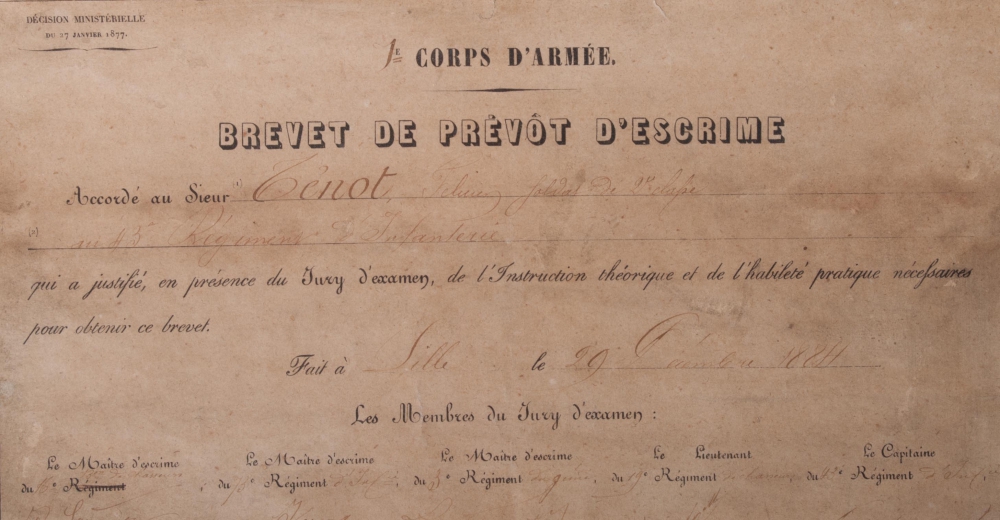 DÉCISION MINISTÉRIELLE
DU 27 JANVIER 1877.
1E CORPS D'ARMÉE.
BREVET DE PRÉVÔT D'ESCRIME
Accordé au Sieur (1) Ténot, soldat de 2e classe
(2) au 45 Régiment d'Infanterie
qui a justifié, en présence du Jury d'examen, de l'Instruction théorique et de l'habileté pratique nécessaires
pour obtenir ce brevet.
Fait à Lille le 29 1884
Les Membres du Jury d'examen :
Le Maître d'escrime Le Maître d'escrime Le Maître d'escrime Le Lieutenant Le Capitaine
du Régiment, du Régiment, du Régiment, du Régiment du Régiment